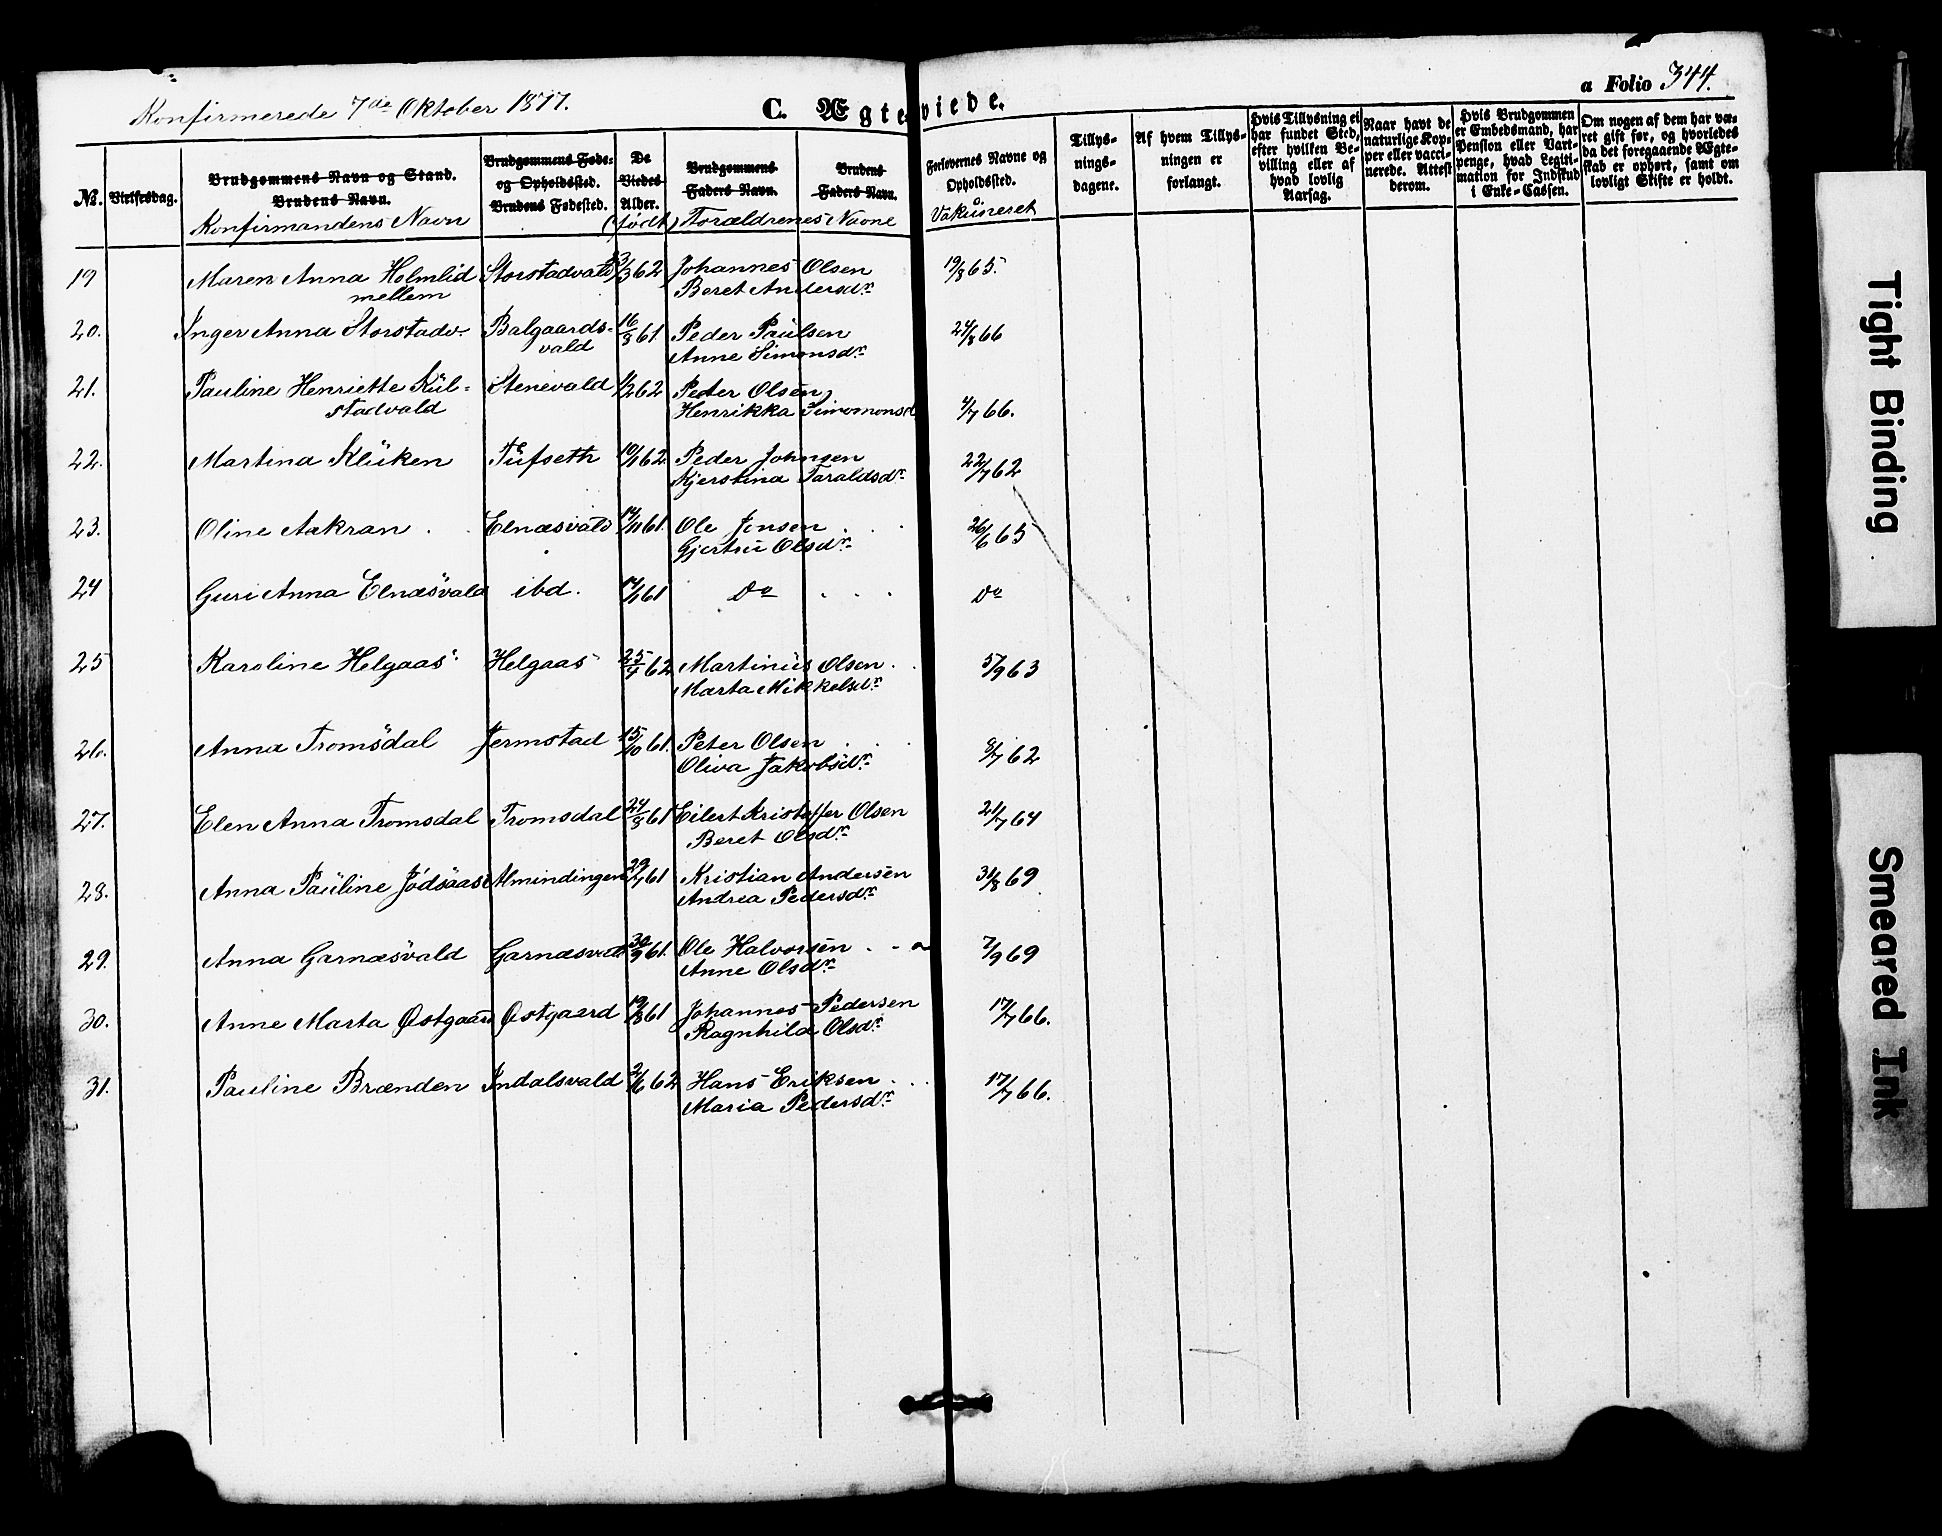 Konfirmerede 7de Oktober 1877.
C. Ægteviede.
a Folio 344.
No. Vielsesdag. Brudgommens Navn og Stand. Brudens Navn. Konfirmandens Navn
Brudgommens Føde- og Opholdssted. Brudens Fødested.
De Viedes Alder. (født)
Brudgommens Faders Navn. Brudens Faders Navn. Forældrenes Navne
Forlovernes Navne og Opholdssted. Vakcineret
Tillys- nings- dagene.
Af hvem Tillys- ningen er forlangt.
Hvis Tillysning ei har fundet Sted, efter hvilken Be- villing eller af hvad lovlig Aarsag.
Naar havt de naturlige Kop- per eller vacci- nerede. Attest derom.
Hvis Brudgommen er Embedsmand, har Pension eller Vart- penge, hvad Legiti- mation for Indskud i Enke-Cassen.
Om nogen af dem har væ- ret gift før, og hvorledes da det foregaaende Ægte- skab er ophørt, samt om lovligt Skifte er holdt.
19 Maren Anna Holmlid Storstadvald /3 62 Johannes Olsen 19/8 65.
mellem Beret Andersdr
20. Inger Anna Storstadv. Balgaards- 16/3 61 Peder Paulsen 24/8 66
vald Anne Simonsdr
21. Pauline Henriette Kül- Stenevald 1/2 62 Peter Olsen
stadvald Henrikka Simomonsd 4/7 66.
22. Martina Klüken Tüfseth 10/1 62 Peder Johnsen 22/7 62
Kjerstina Taraldsdr
23. Oline Aakran Elnæsvald 14/11 61. Ole Jensen 26/6 65
Gjertru Olsdr
24 Guri Anna Elnæsvald ibd. 14/11 61 Do Do
25 Karoline Helgaas Helgaas 25/4 62 Martinus Olsen 5/9 63
Marta Mikkelsdr
26. Anna Tromsdal Jermstad 15/10 61. Peter Olsen 8/7 62
Oliva Jakobsdr
27. Elen Anna Tromsdal Tromsdal 24/3 61 Eilert Kristoffer Olsen 21/7 64
Beret Olsdr
28. Anna Pauline Jødsaas Almindingen 29/7 61 Kristian Andersen 31/8 69
Andrea Pedersdr
29. Anna Garnæsvald Garnæsvald 30/9 61. Ole Halvorsen 7/9 69
Anne Olsdr
30. Anne Marta Østgaard Østgaard 19/8 61 Johannes Pedersen 17/7 66.
Ragnhild Olsdr
31. Pauline Brænden Indalsvald 2/6 62 Hans Eriksen 17/7 66.
Maria Pedersdr
Tight Binding
Smeared Ink